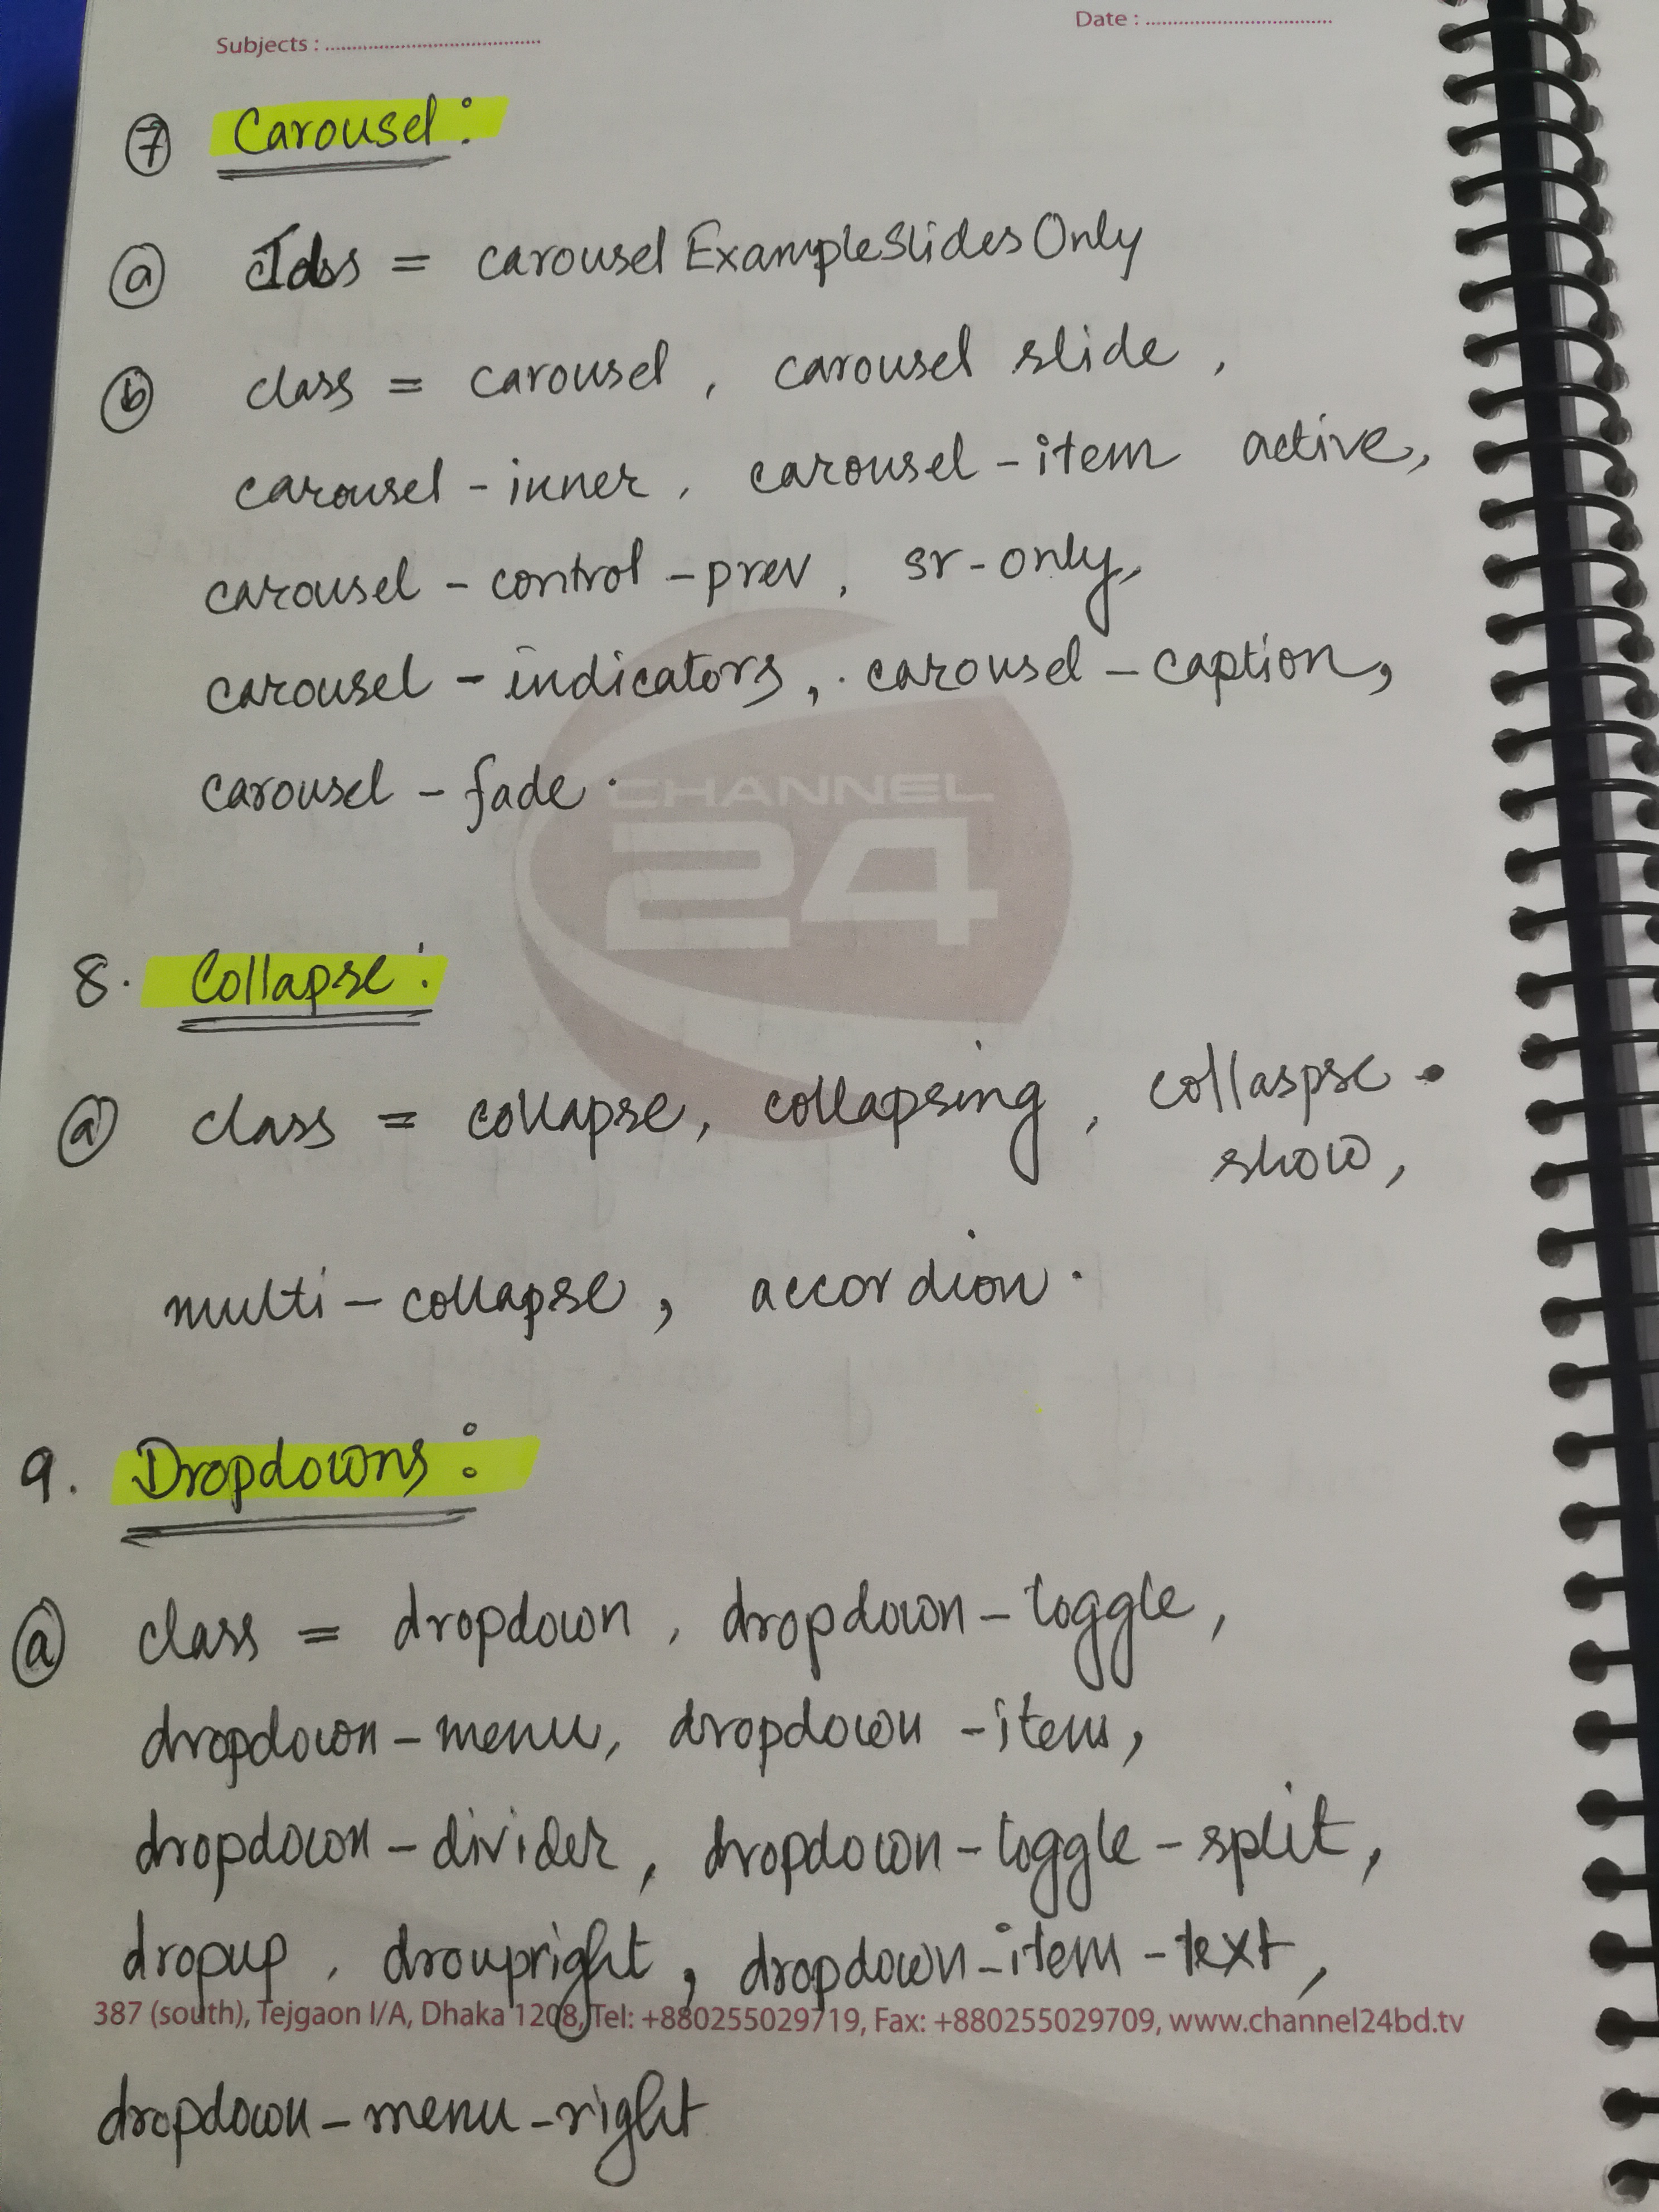 Date :
Subjects :
7 Carousel :
a Ids = carouselExampleSlidesOnly
b class = carousel, carousel slide,
carousel-inner, carousel-item active,
carousel-control-prev, sr-only,
carousel-indicators, carousel-caption,
carousel-fade.
CHANNEL
24
8. Collapse :
a class = collapse, collapsing, collaspse
show,
multi-collapse, accordion.
9. Dropdowns :
a class = dropdown, dropdown-toggle,
dropdown-menu, dropdown-item,
dropdown-divider, dropdown-toggle-split,
dropup, droupright, dropdown-item-text,
387 (south), Tejgaon I/A, Dhaka 1208, Tel: +880255029719, Fax: +880255029709, www.channel24bd.tv
dropdown-menu-right